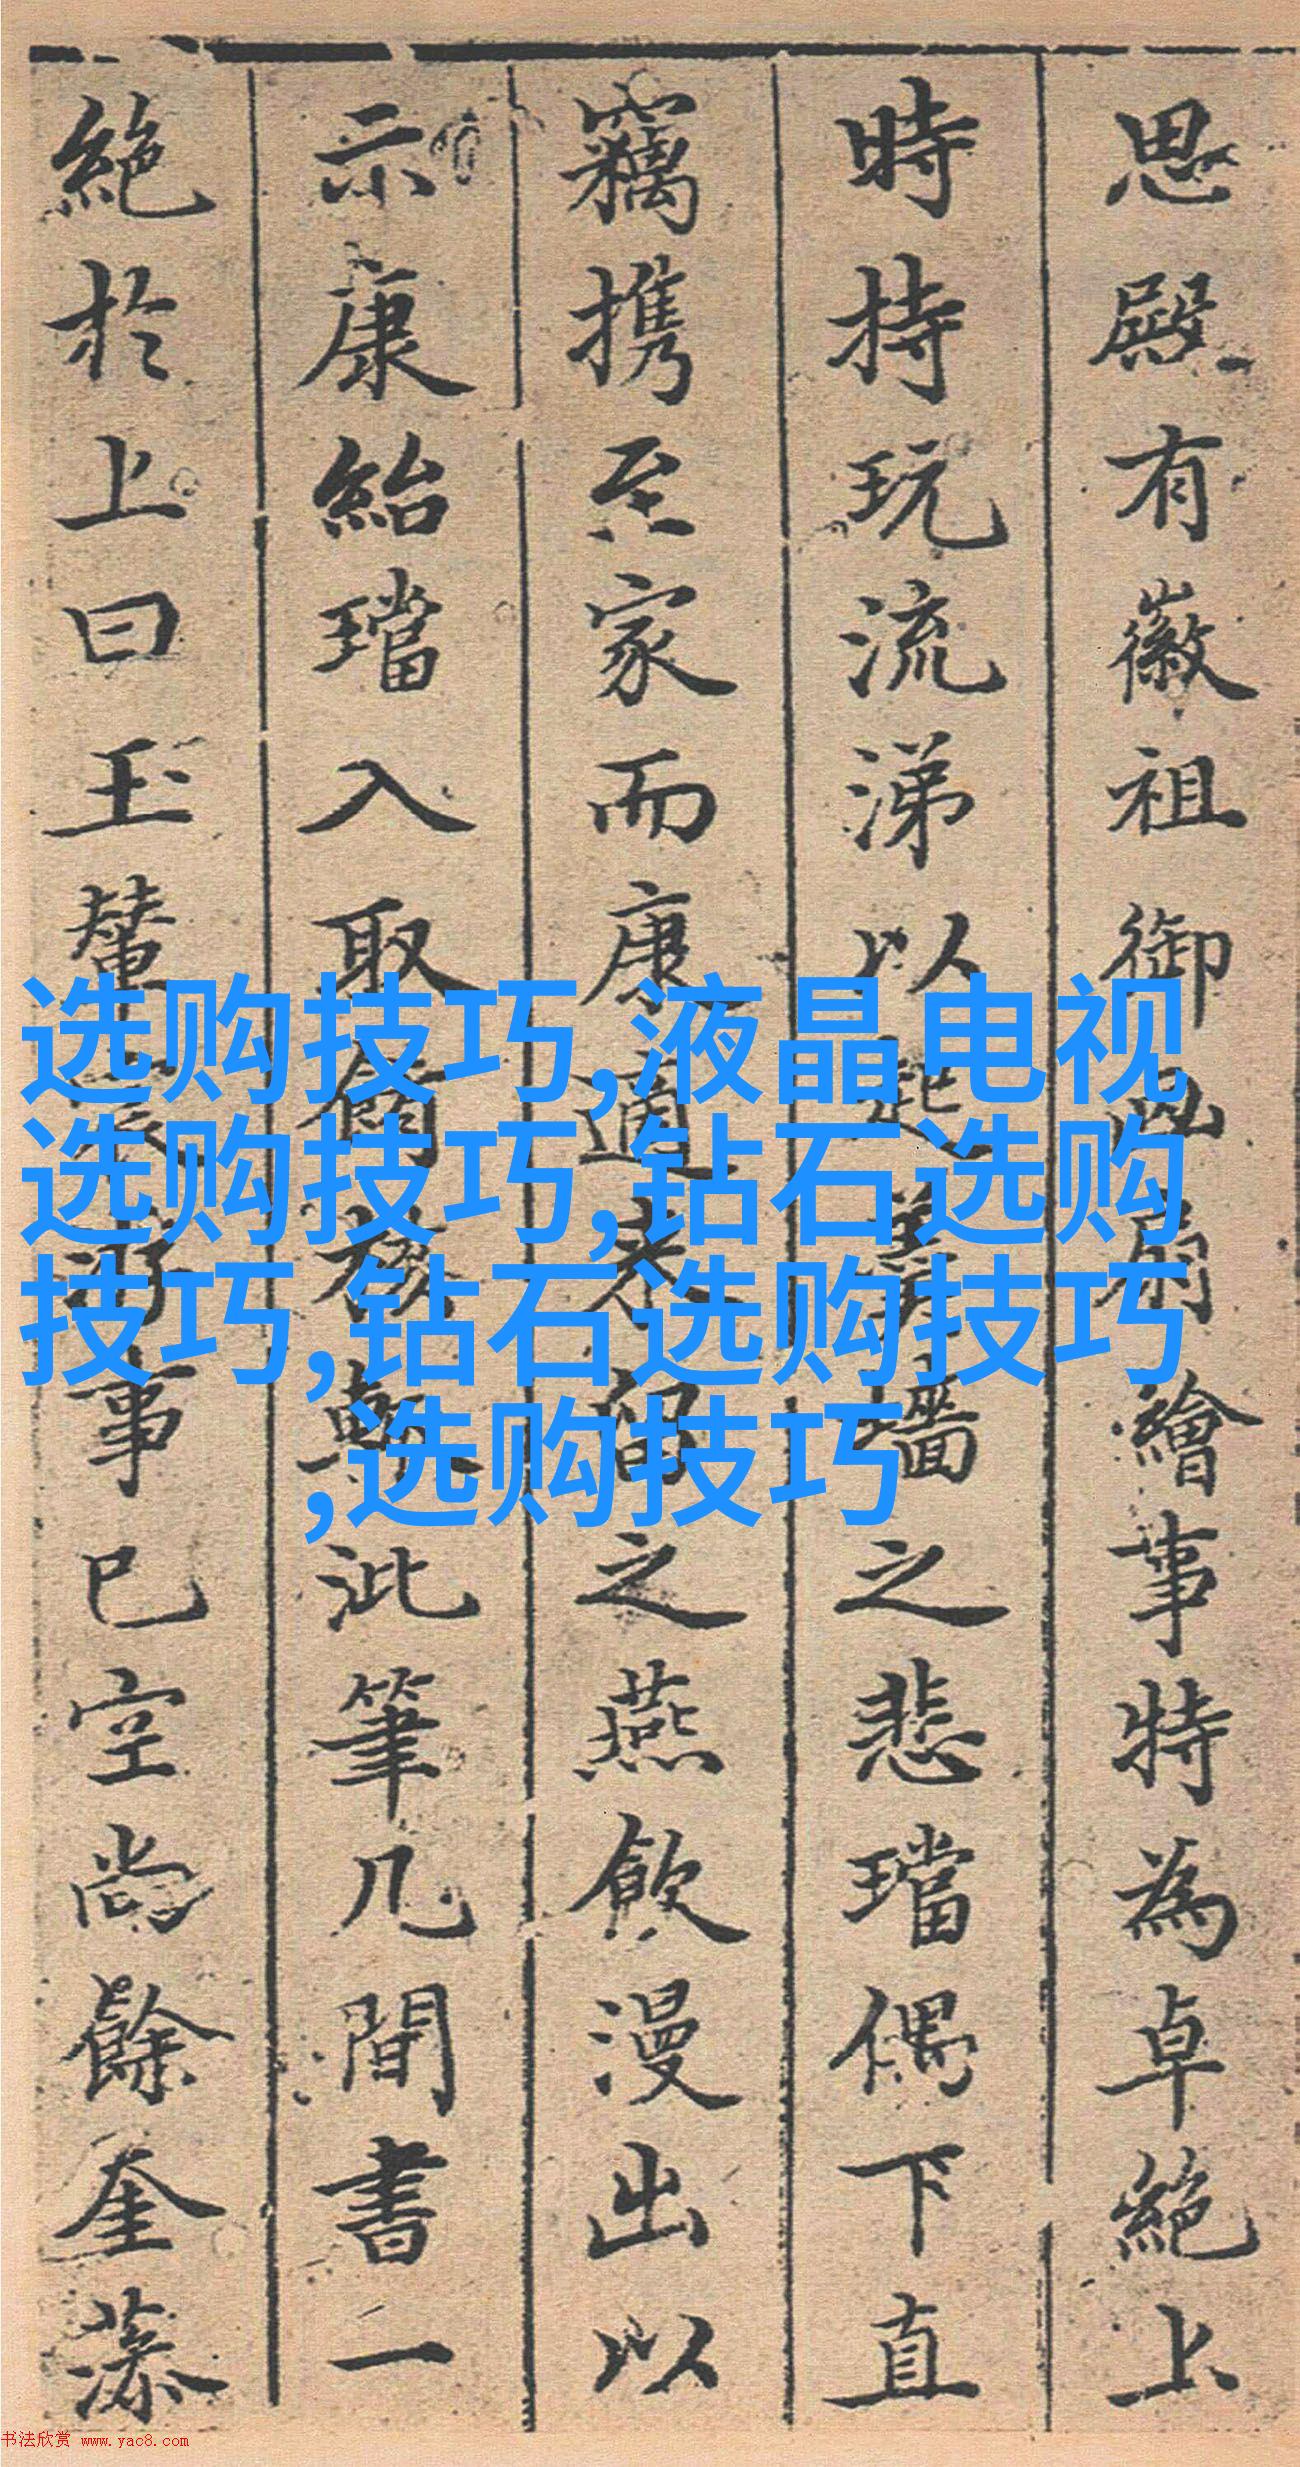 思殿有徽祖御此扇繪事特為卓絕上
時持玩流涕以起羹墻之悲璫偶下直
竊携至家而康適来留之燕飲漫出以
示康紿璫入取殽核輒泚筆几間書一
絕於上曰玉輦宸遊事已空尚餘奎藻
选购技巧,液晶电视
选购技巧,钻石选购
技巧,钻石选购技巧
,选购技巧
书法欣赏 www.yac8.com